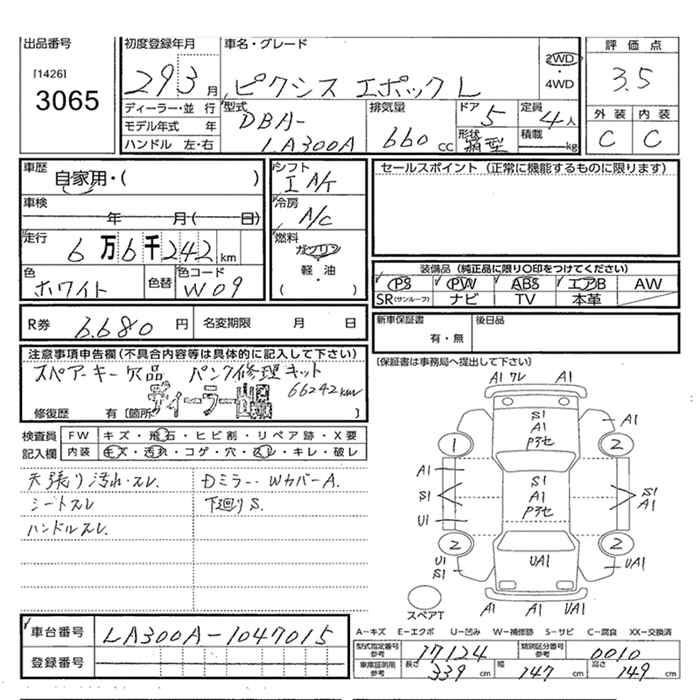 出品番号
[1426]
3065
初度登録年月
29 3 月
車名・グレード
ピクシス エポック L
2WD
・
4WD
評価点
3.5
外装 内装
C C
ディーラー・並 行
モデル年式 年
ハンドル 左・右
型式
DBA-
LA300A
排気量
660 cc
ドア
5
形状
箱型
定員
4人
積載
kg
車歴
自家用・( )
車検
年 月( 日)
走行
6万6千242km
色
ホワイト
色替
色コード
W09
シフト
I A/T
冷房
A/C
燃料
ガソリン
軽・油
セールスポイント (正常に機能するものに限ります)
装備品 (純正品に限り○印をつけてください)
PS PW ABS エアB AW
SR(サンルーフ) ナビ TV 本革
R券
6.680 円
名変期限 月 日
新車保証書
有・無
後日品
注意事項申告欄(不具合内容等は具体的に記入して下さい)
スペアーキー欠品 パンク修理キット
66242km
修復歴 有〔箇所 〕
[保証書は事務局へ提出して下さい]
検査員
記入欄
FW キズ・飛石・ヒビ割・リペア跡・X要
内装 キズ・汚れ・コゲ・穴・スレ・キレ・破レ
天張り汚れ・スレ
シートスレ
ハンドルスレ
Dミラー・WカバーA.
下廻りS.
A1 ワレ A1
S1
A1
Pアセ
A1
1 2
A1
S1
U1
S1
A1
Pアセ
S1
A1
2 2
U1
S1
UA1
A1
スペアT
A1 A1 UA1
車台番号
LA300A-1047015
登録番号
A-キズ E-エクボ U-凹み W-補修跡 S-サビ C-腐食 XX-交換済
型式指定番号
参考
17124
類別区分番号
参考
0010
車庫証明用
参考
長さ
339 cm
幅
147 cm
高さ
149 cm